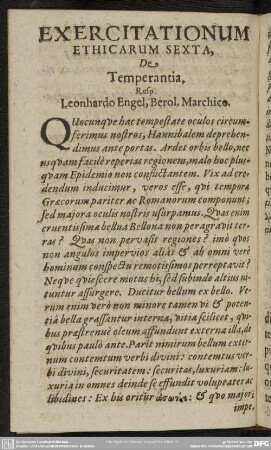 EXERCITATIONUM
ETHICARUM SEXTA,
De
Temperantia,
Resp.
Leonhardo Engel, Berol. Marchico.
QUocunque hac tempestate oculos circum-
ferimus nostros, Hannibalem deprehen-
dimus ante portas. Ardet orbis bello, nec
usquam facilè reperias regionem, malo hoc plus-
quam Epidemio non conflictantem. Vix ad cre-
dendum inducimur, veros esse, qui tempora
Græcorum pariter ac Romanorum componunt;
sed majora oculis nostris usurpamus. Quas enim
cruentissima bellua Bellona non peragravit ter-
ras? Quas non pervasit regiones? imò quos
non angulos impervios aliàs & ab omni verè
hominum conspectu remotissimos perreptavit?
Neque quiescere motus hi, sed subinde altius ni-
tuntur assurgere. Ducitur bellum ex bello. Ve-
rum enim verò non minore tamen vi & poten-
tiâ bella grassantur interna, vitia scilicet, qui-
bus præstrenuè oleum affundunt externa illa, de
quibus paulò ante. Parit nimirum bellum exter-
num contemtum verbi divini: contemtus ver-
bi divini, securitatem: securitas, luxuriam: lu-
xuria in omnes deinde se effundit voluptates ac
libidines: Ex his oritur ἀσωτία: & quo majori
impe-